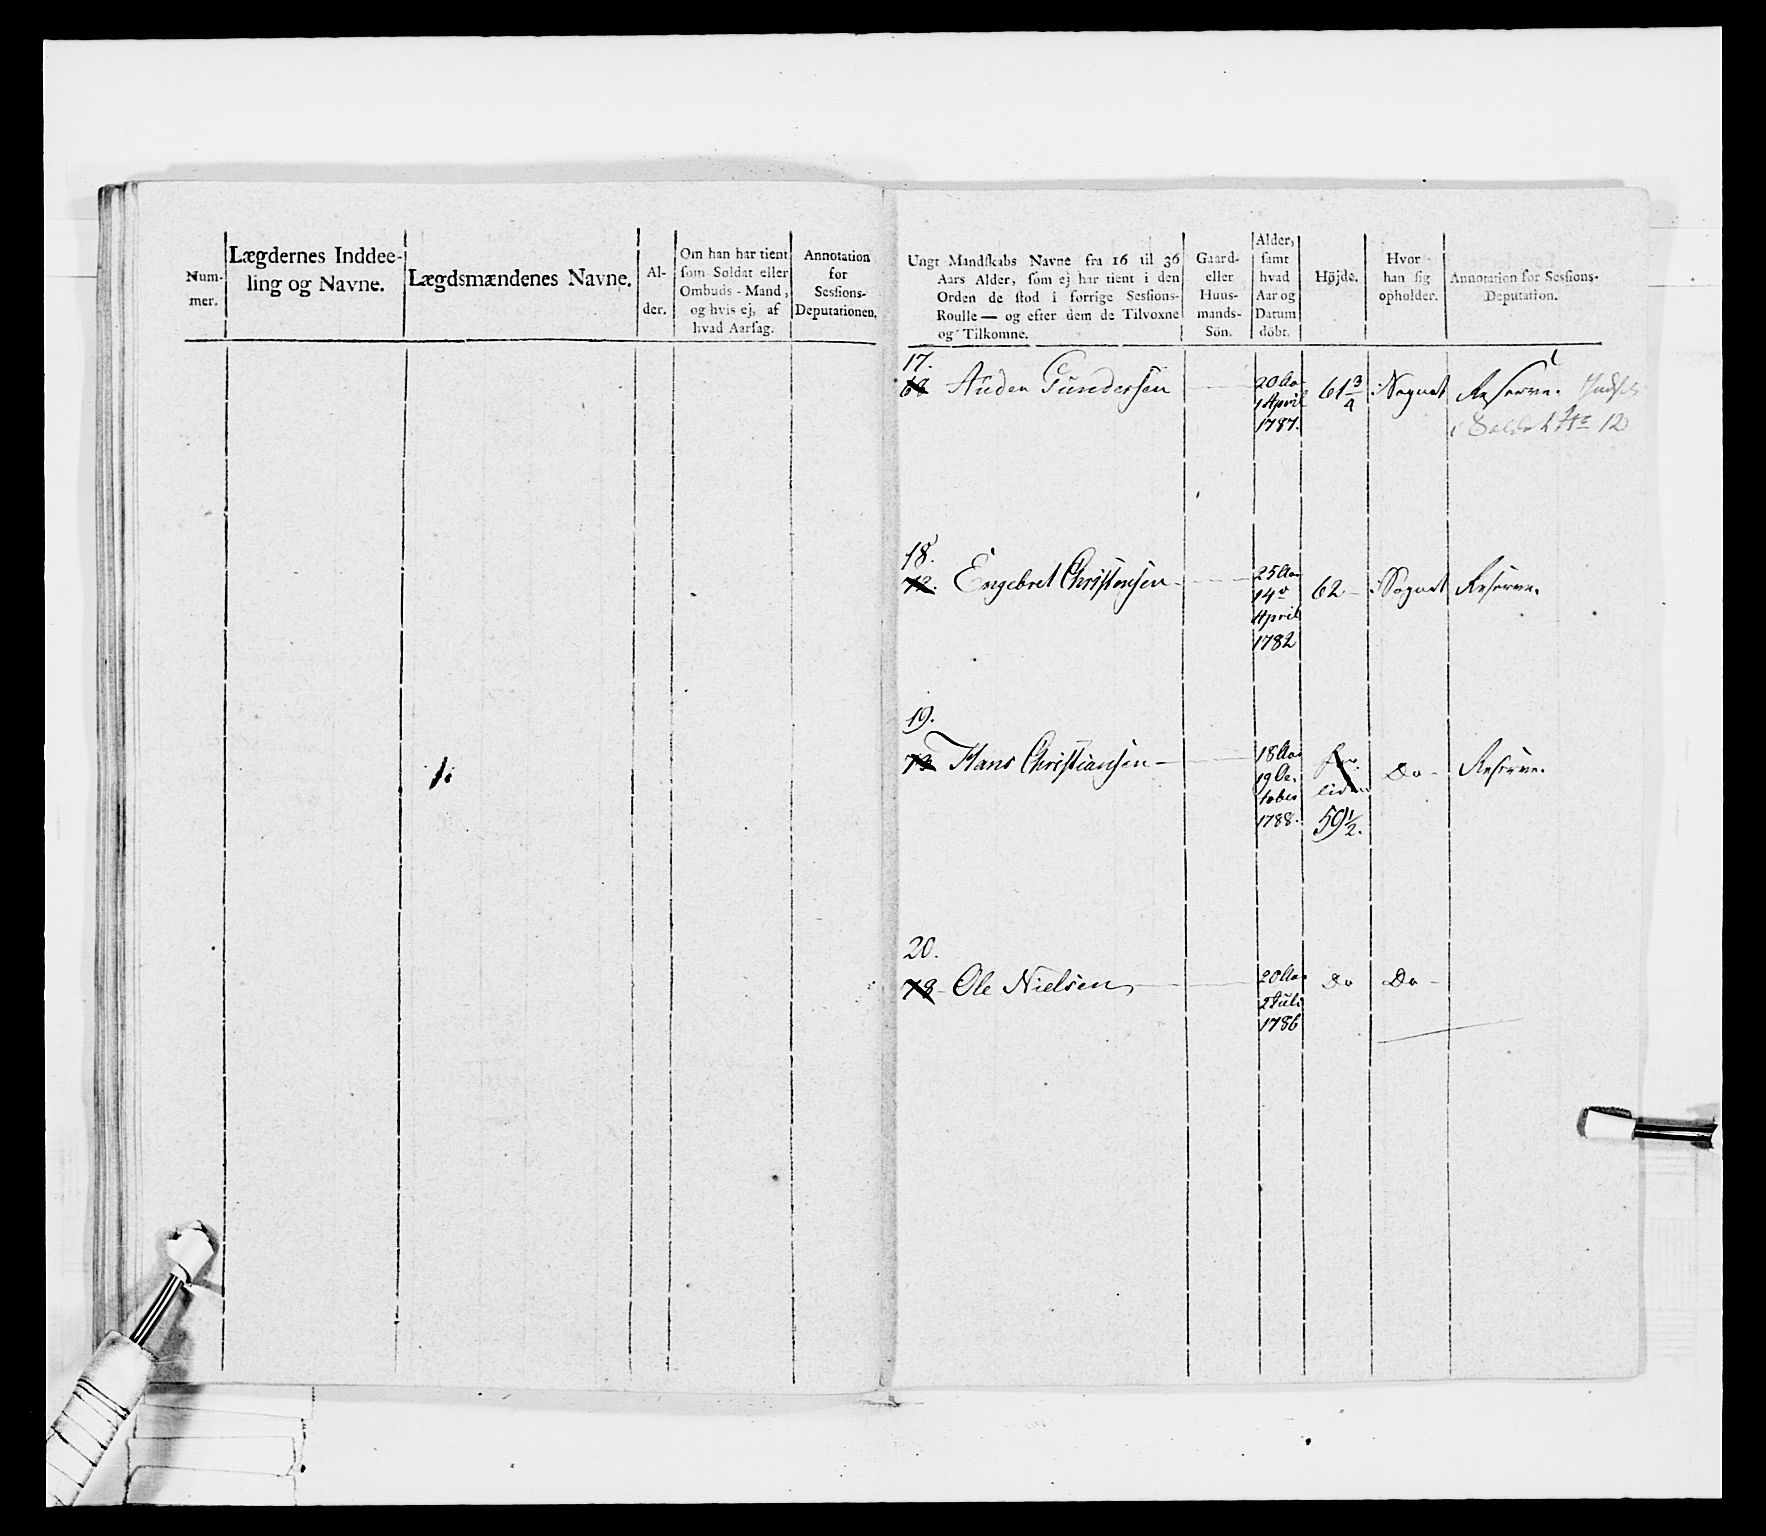 Num-
mer.
Lægdernes Inddee-
ling og Navne.
Lægdsmændenes Navne.
Al-
der.
Om han har tient
som Soldat eller
Ombuds-Mand,
og hvis ej, af
hvad Aarsag.
Annotation
for
Sessions-
Deputationen.
Ungt Mandskabs Navne fra 16 til 36
Aars Alder, som ej har tient i den
Orden de stod i forrige Sessions-
Roulle — og efter dem de Tilvoxne
og Tilkomne.
Gaard-
eller
Huus-
mands-
Sön.
Alder,
samt
hvad
Aar og
Datum
döbt.
Höjde.
Hvor
han sig
opholder.
Annotation for Sessions-
Deputation.
17.
68 Auden Gundersen
20 Aar
1 April
1787.
61 3/4
i Sognet
Reserve.
18.
72. Engebret Christensen
25 Aar
14de
April
1782
62
i Sognet
Reserve.
19.
73 Hans Christiansen
18 Aar
19 Oc-
tober
1788.
liden
59 1/2.
Do
Reserve.
20.
78 Ole Nielsen
20 Aar
2 Juli
1786
Do
Do